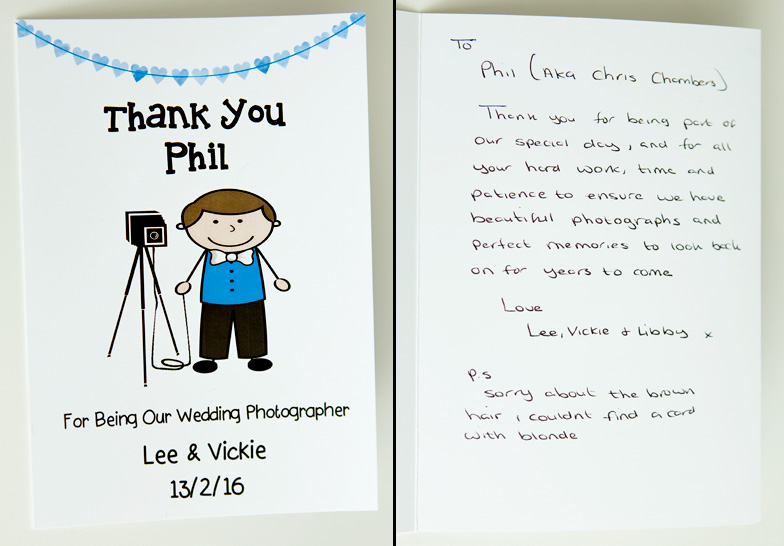 Thank You
Phil
For Being Our Wedding Photographer
Lee & Vickie
13/2/16
To
Phil (Aka Chris Chambers)
Thank you for being part of
our special day, and for all
your hard work, time and
patience to ensure we have
beautiful photographs and
perfect memories to look back
on for years to come
Love
Lee, Vickie & Libby x
P.s
sorry about the brown
hair i couldnt find a card
with blonde